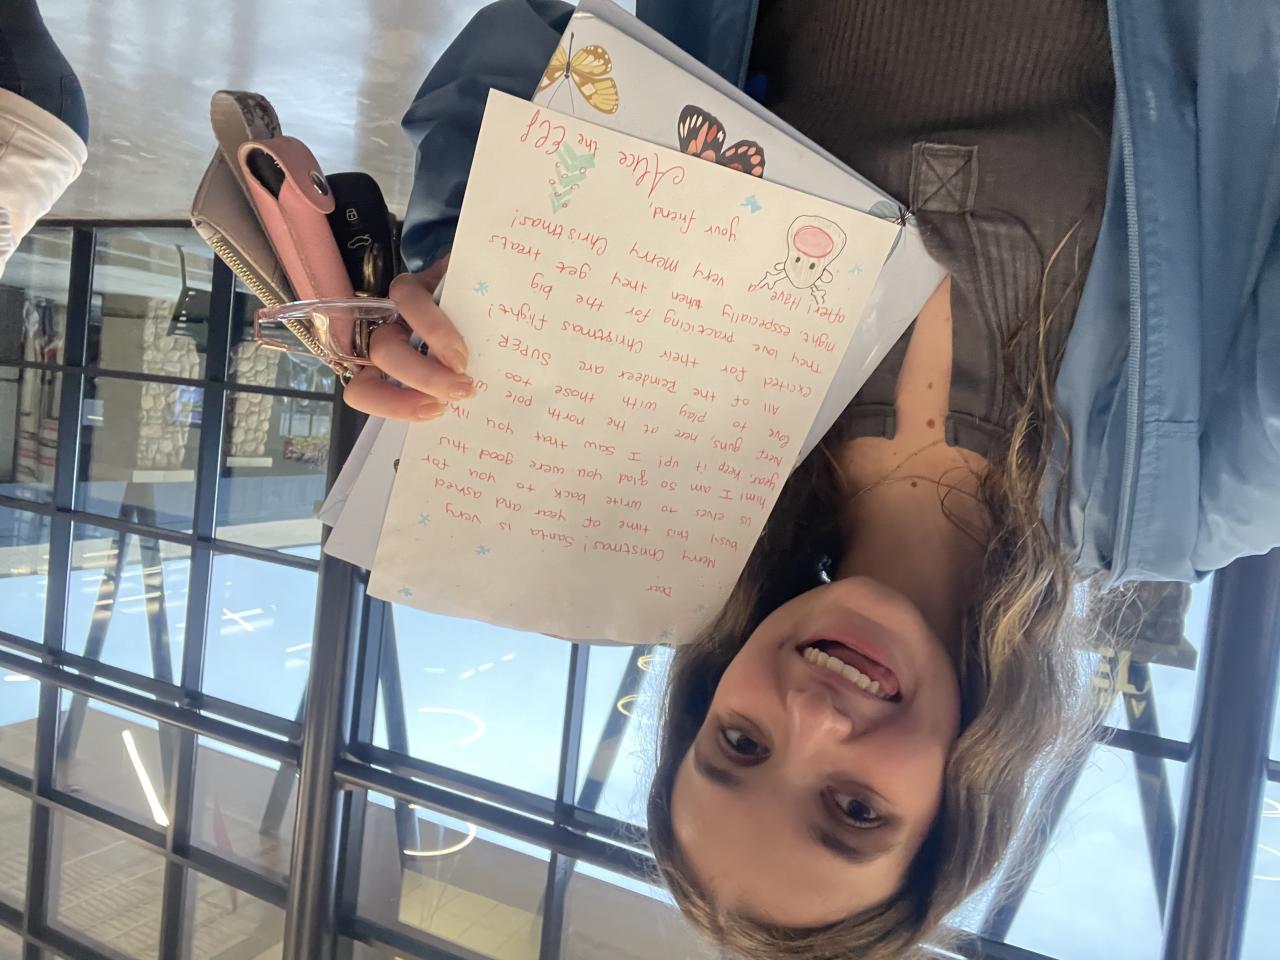 Dear
Merry Christmas! Santa is very
busy this time of year and asked
us elves to write back to you for
him! I am so glad you were good this
year, keep it up! I saw that you like
Nerf guns, here at the north pole
love to play with those too.
All of the Reindeer are SUPER
excited for their Christmas flight!
They love practicing for the big
night, esspecially when they get treats
after! Have a very merry Christmas!
your friend,
Alice the Elf